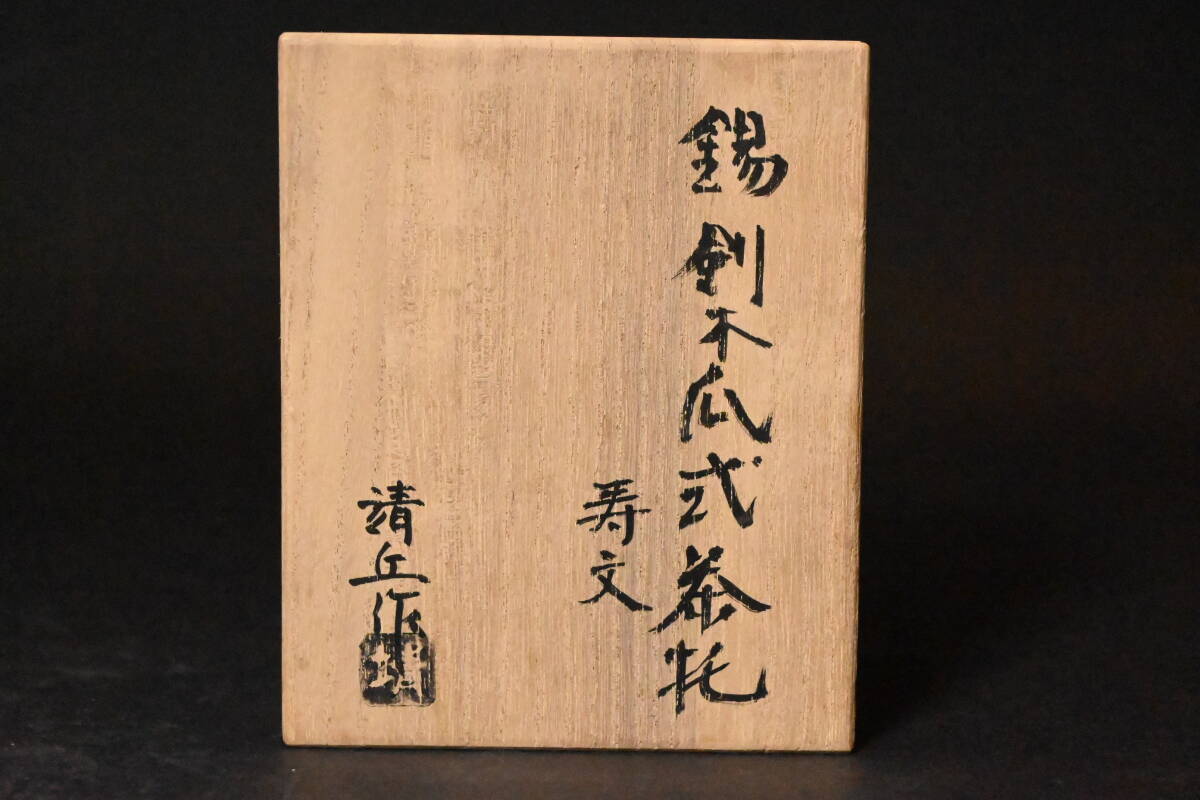 錫剣木瓜式茶托
寿文
靖丘作